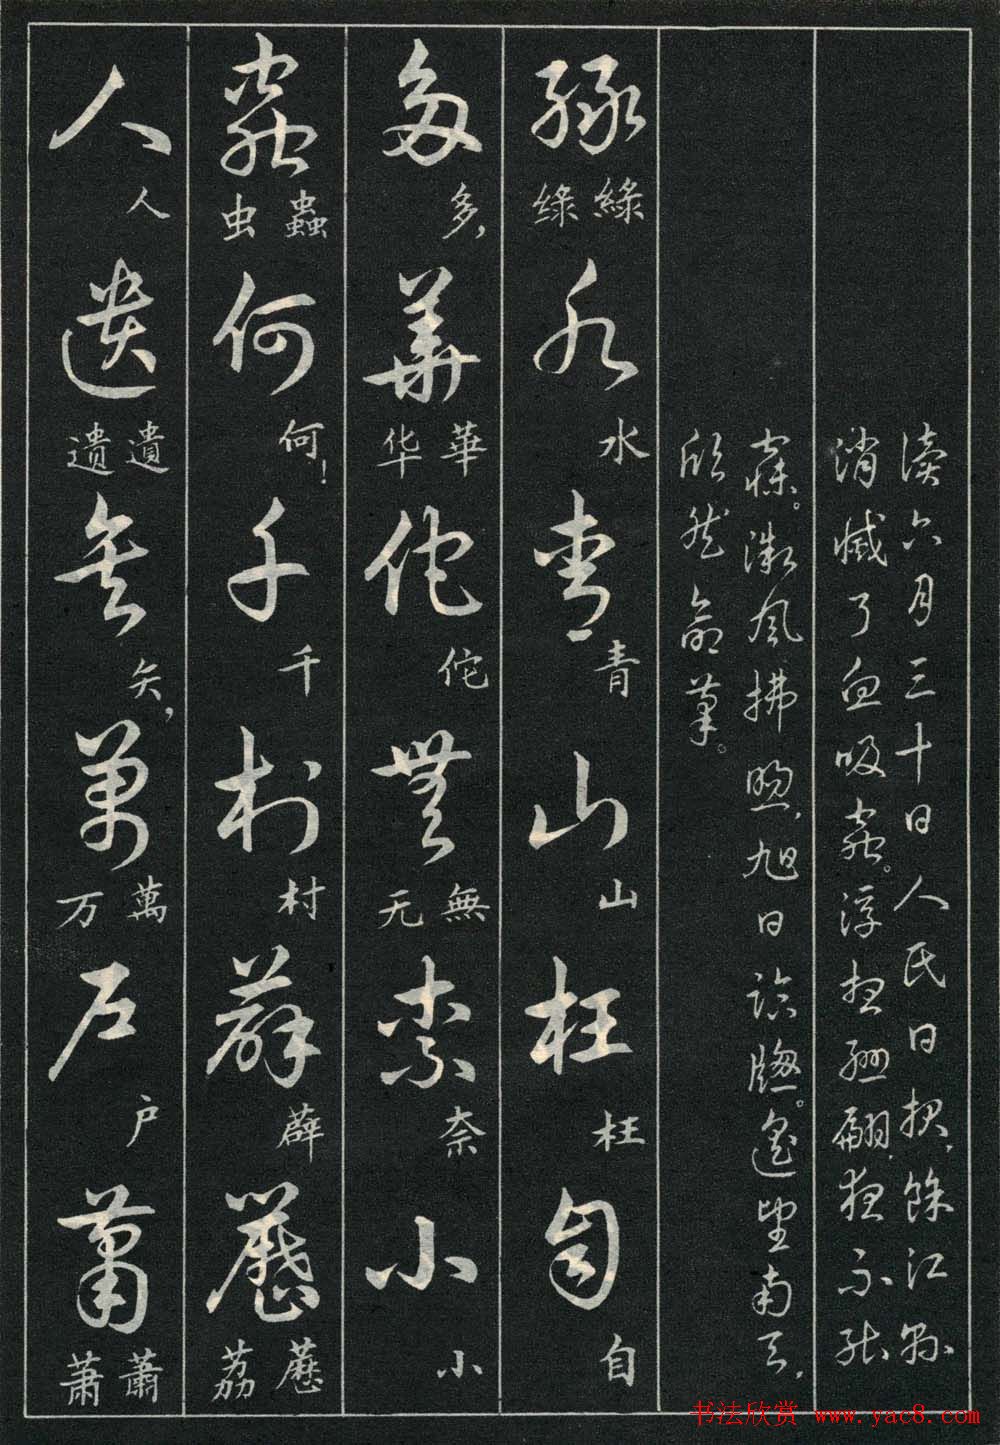 讀六月三十日人民日報,餘江縣
消滅了血吸蟲。浮想聯翩,夜不能
寐。微风拂煦,旭日临窗。遥望南天,
欣然命筆。
綠 綠 绿 水 水 青 青 山 山 枉 枉 自 自
多 多, 華 華 华 佗 佗 無 無 无 奈 奈 小 小
蟲 蟲 虫 何 何! 千 千 村 村 薜 薜 荔
人 人 遺 遺 遗 矢 矢, 萬 萬 万 户 户 蕭 蕭 萧
书法欣赏 www.yac8.com